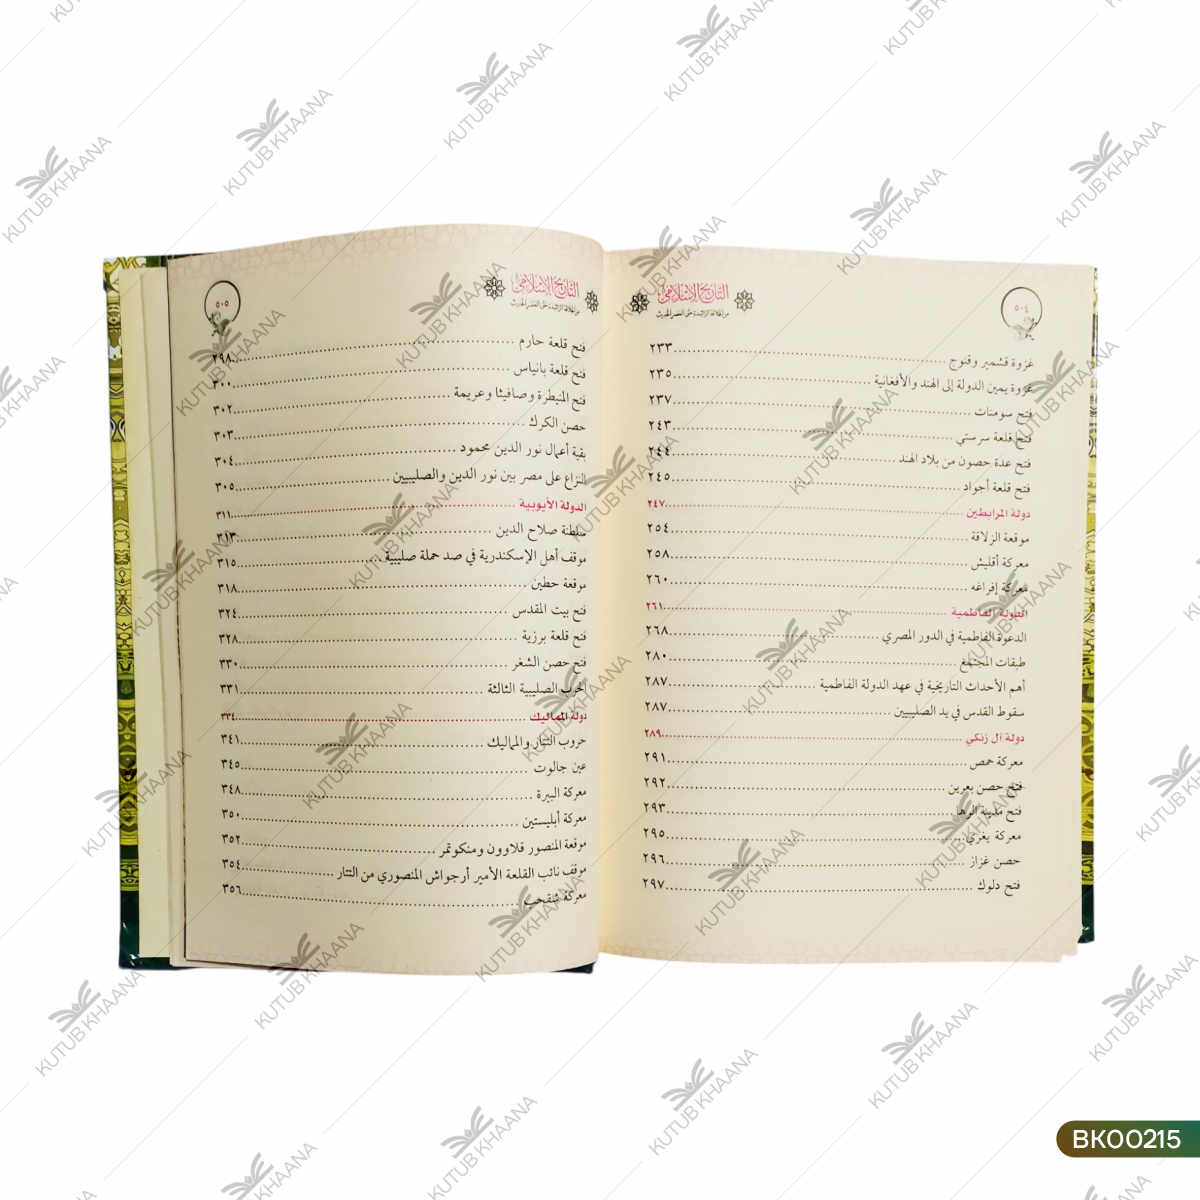 ٥٠٤
التاريخ الإسلامي
من الخلافة الراشدة حتى العصر الحديث
غزوة قشمير وقنوج ٢٣٣
غزوة يمين الدولة إلى الهند والأفغانية ٢٣٥
فتح سومنات ٢٣٧
فتح قلعة سرستي ٢٤٣
فتح عدة حصون من بلاد الهند ٢٤٤
فتح قلعة أجواد ٢٤٥
دولة المرابطين ٢٤٧
موقعة الزلاقة ٢٥٤
معركة أقليش ٢٥٨
معركة إفراغه ٢٦٠
الدولة الفاطمية ٢٦١
الدعوة الفاطمية في الدور المصري ٢٦٨
طبقات المجتمع ٢٨٠
أهم الأحداث التاريخية في عهد الدولة الفاطمية ٢٨٧
سقوط القدس في يد الصليبيين ٢٨٧
دولة آل زنكي ٢٨٩
معركة حمص ٢٩١
فتح حصن بعرين ٢٩٢
فتح مدينة الرها ٢٩٣
معركة يغري ٢٩٥
حصن عزاز ٢٩٦
فتح دلوك ٢٩٧
٥٠٥
التاريخ الإسلامي
من الخلافة الراشدة حتى العصر الحديث
فتح قلعة حارم ٢٩٨
فتح قلعة بانياس ٣٠٠
فتح المنيطرة وصافيثا وعريمة ٣٠٢
حصن الكرك ٣٠٣
بقية أعمال نور الدين محمود ٣٠٤
النزاع على مصر بين نور الدين والصليبيين ٣٠٥
الدولة الأيوبية ٣١١
سلطنة صلاح الدين ٣١٣
موقف أهل الإسكندرية في صد حملة صليبية ٣١٥
موقعة حطين ٣١٨
فتح بيت المقدس ٣٢٤
فتح قلعة برزية ٣٢٨
فتح حصن الشغر ٣٣٠
الحرب الصليبية الثالثة ٣٣١
دولة المماليك ٣٣٤
حروب التتار والمماليك ٣٤١
عين جالوت ٣٤٥
معركة البيرة ٣٤٨
معركة أبليستين ٣٥٠
موقعة المنصور قلاوون ومنكوتمر ٣٥٢
موقف نائب القلعة الأمير أرجواش المنصوري من التتار ٣٥٤
معركة شقحب ٣٥٦
KUTUB KHAANA
BK00215